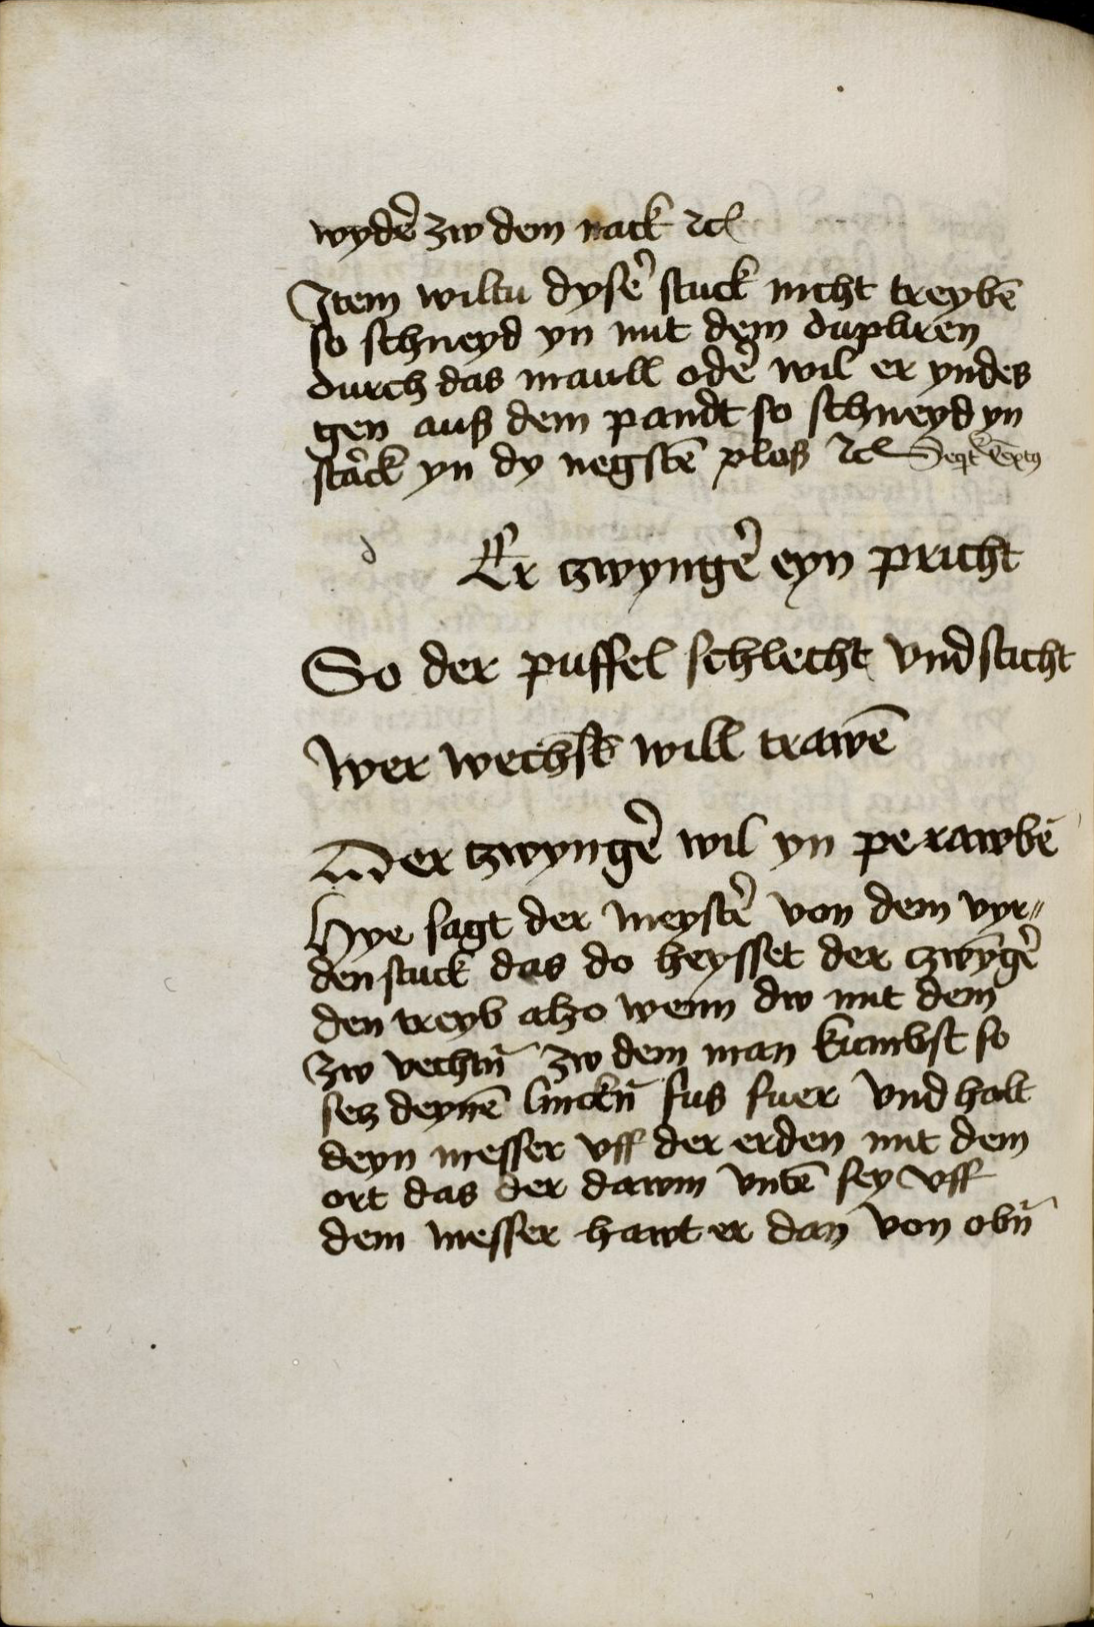 wydẽ zw dem nack ⁊cl
Item wiltu dysẽ stuck nicht treybẽ
so schneyd yn mit dem duplirẽn
durch das maull odẽ wil er yndes
gen auß dem pandt so schneyd yn
starck yn dy negstẽ ploß ⁊c
d Er tzwyngẽ eyn pricht
So der puffel schlecht vnd sticht
Wer wechslẽ will trawẽ
Der tzwyngẽ wil yn perawbẽ
Hye sagt der meystẽ von dem vyr〃
den stuck das do heysset der tzwȳgẽ
den treyb alzo wenn dw mit dem
zw vechtñ zw dem man kumbst so
setz deynẽ linckñ fus fuer vnd halt
deyn messer vff der erden mit dem
ort das der dawm vntẽ sey vff
dem messer hawt er dan von obñ